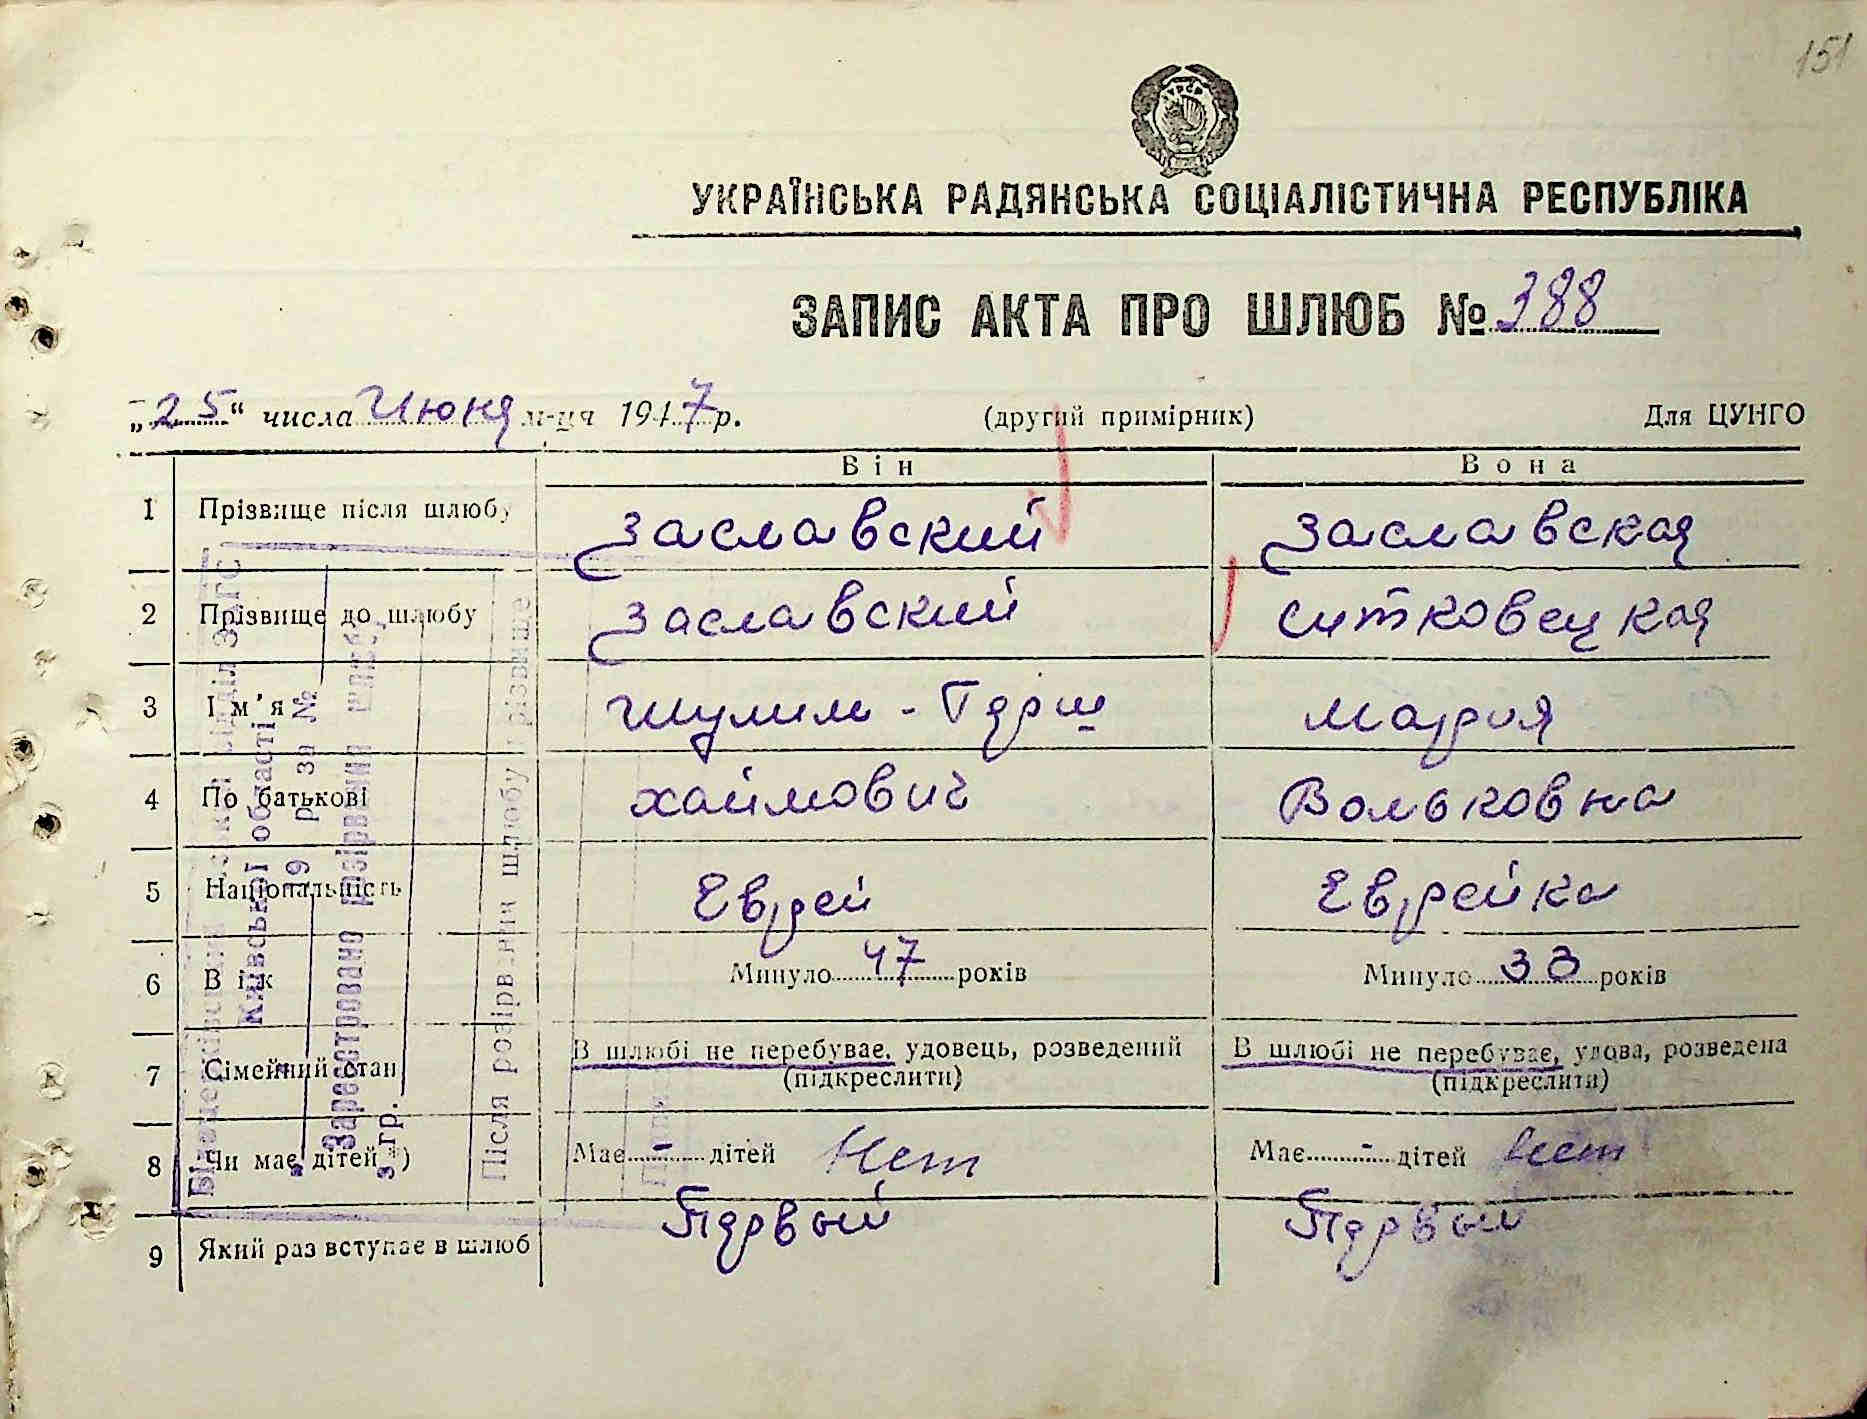 151
УКРАЇНСЬКА РАДЯНСЬКА СОЦІАЛІСТИЧНА РЕСПУБЛІКА
ЗАПИС АКТА ПРО ШЛЮБ № 388
„25“ числа Июня м-ця 1947 р. (другий примірник) Для ЦУНГО
Він Вона
1 Прізвище після шлюбу Заславский Заславская
2 Прізвище до шлюбу Заславский Ситковецкая
3 Ім'я Шулим - Герш Мария
4 По батькові Хаймович Вольковна
5 Національність Еврей Еврейка
6 Вік Минуло 47 років Минуло 33 років
7 Сімейний стан В шлюбі не перебуває, удовець, розведений В шлюбі не перебуває, удова, розведена
(підкреслити) (підкреслити)
8 Чи має дітей *) Має - дітей Нет Має - дітей Нет
9 Який раз вступає в шлюб Первый Первый
відділ ЗАГС
Київської області
19 р за №
Зареєстровано розірвання шлюбу,
з гр.
Після розірвання шлюбу прізвище